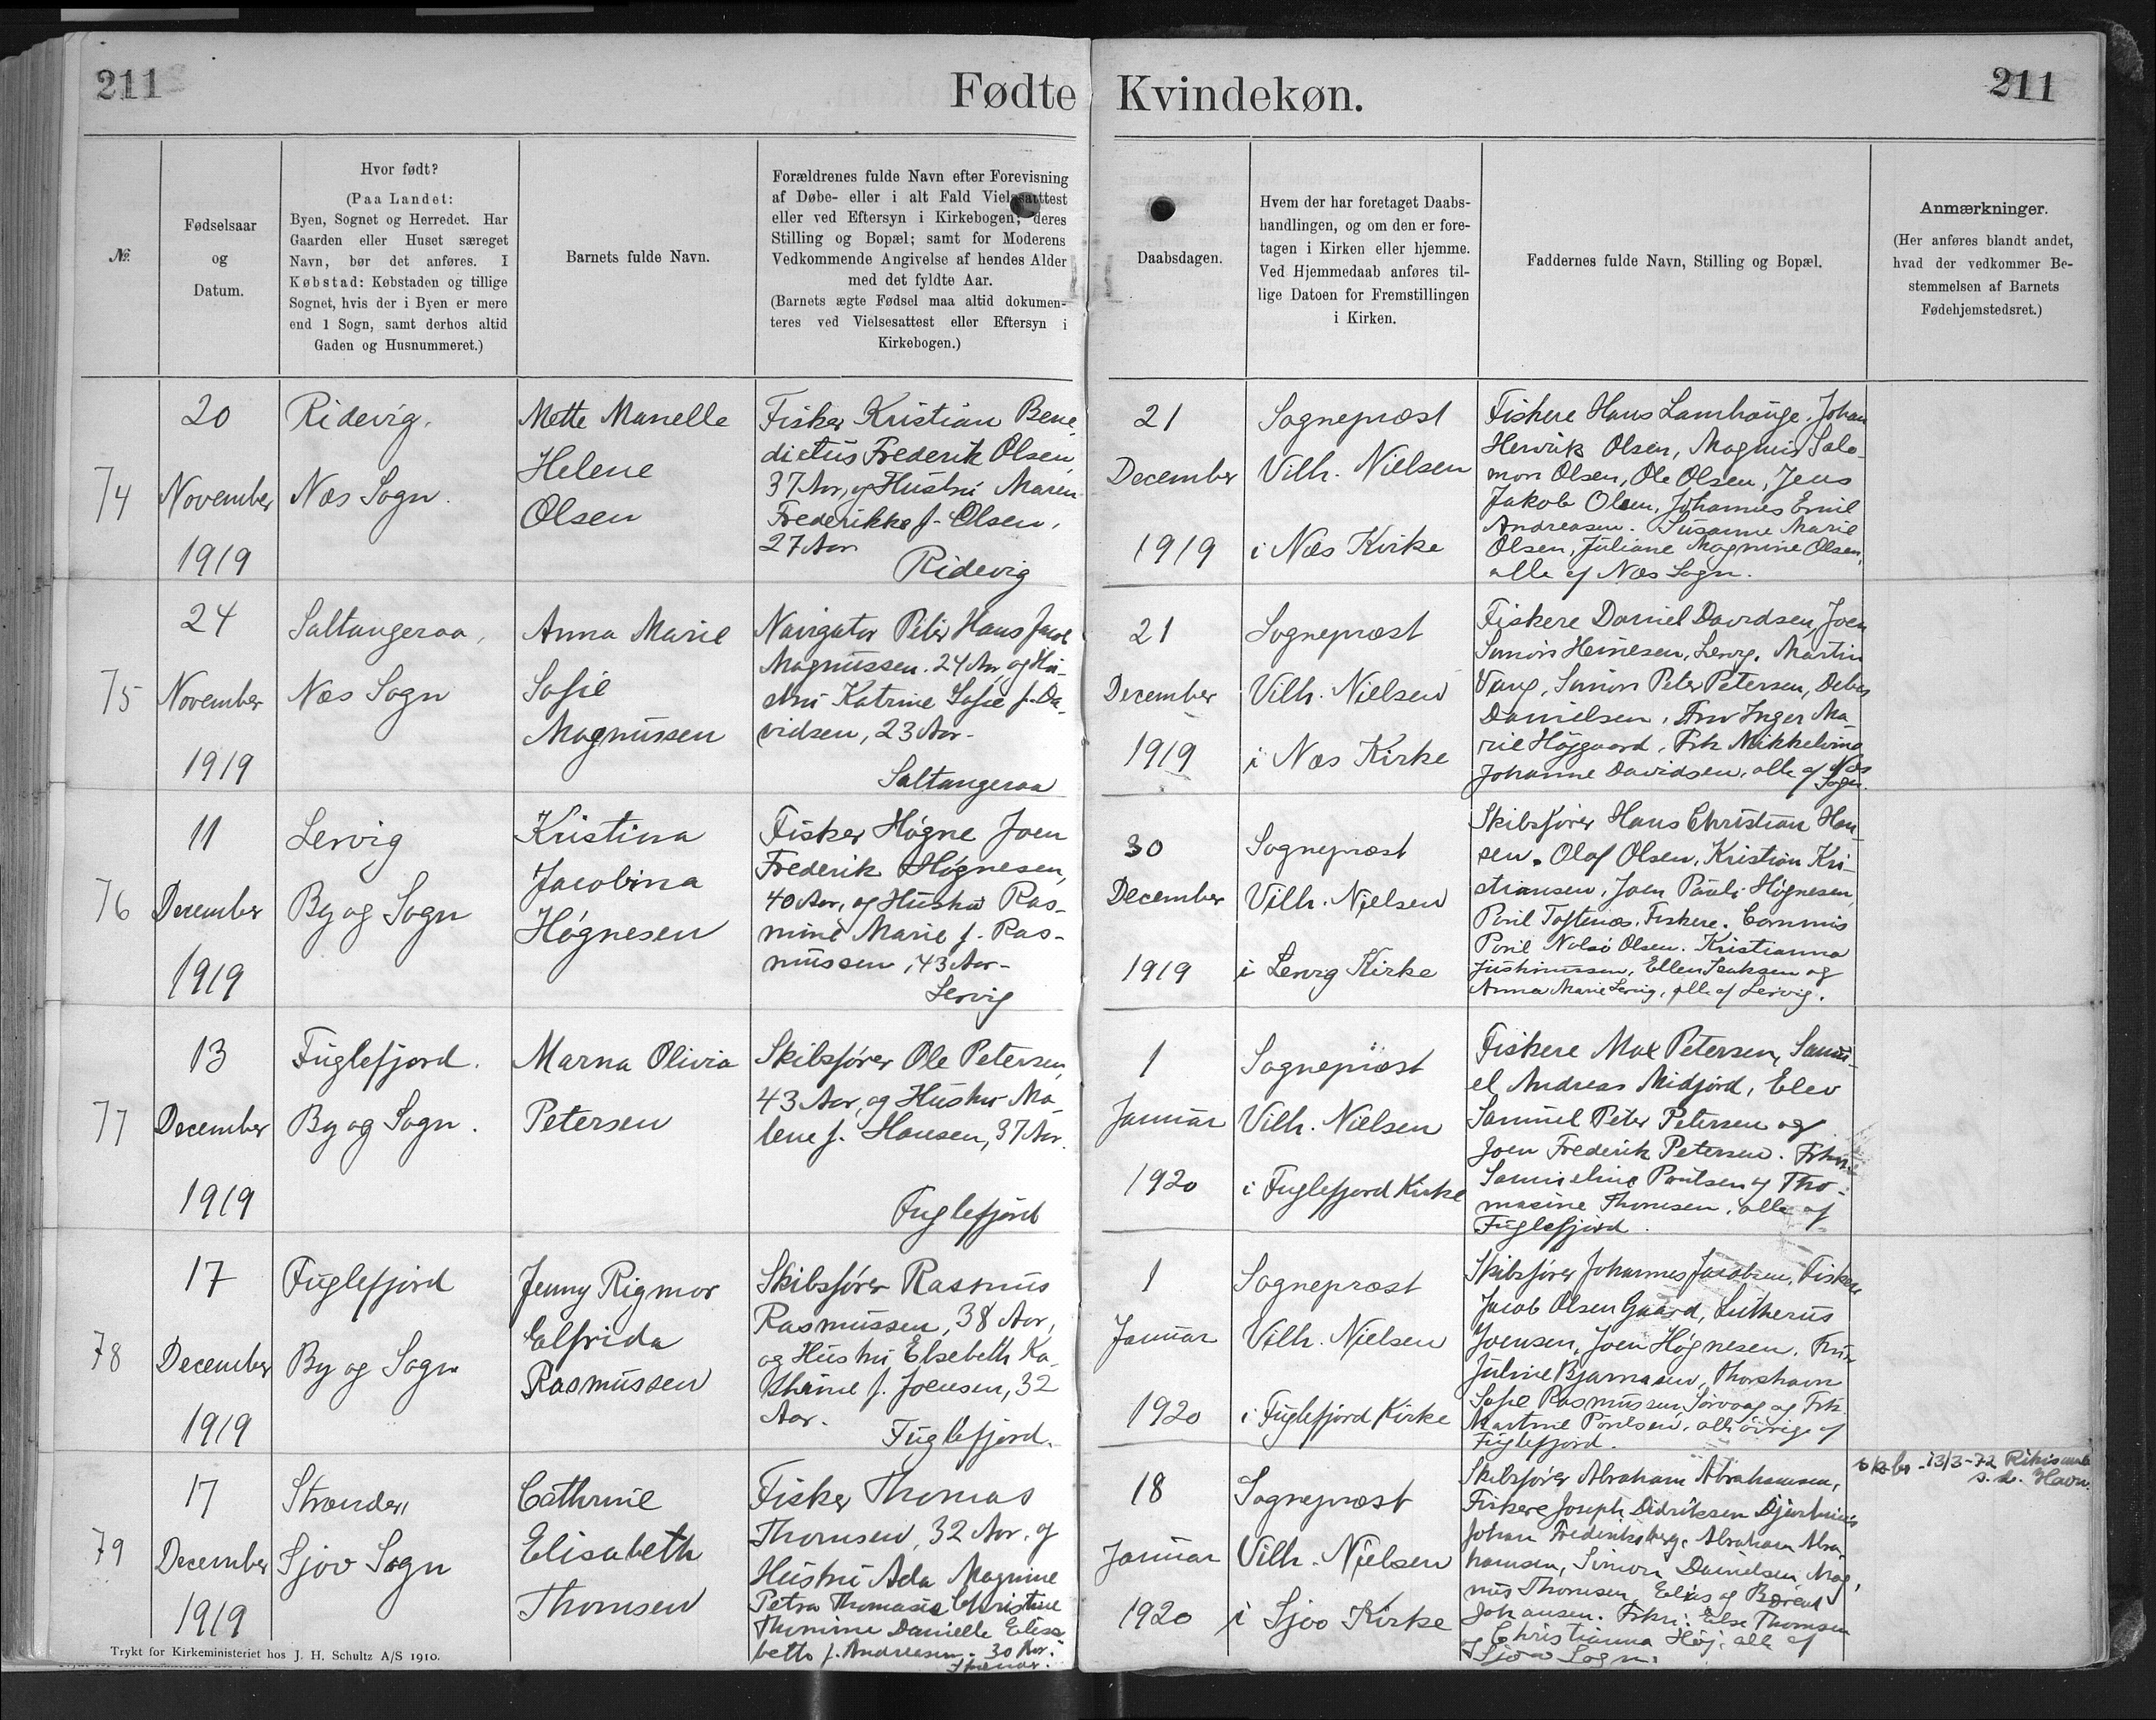 211
Fødte
Kvindekøn.
211
№
Fødselsaar
og
Datum.
Hvor født?
(Paa Landet:
Byen, Sognet og Herredet. Har
Gaarden eller Huset særeget
Navn, bør det anføres. I
Købstad: Købstaden og tillige
Sognet, hvis der i Byen er mere
end 1 Sogn, samt derhos altid
Gaden og Husnummeret.)
Barnets fulde Navn.
Forældrenes fulde Navn efter Forevisning
af Døbe- eller i alt Fald Vielsesattest
eller ved Eftersyn i Kirkebogen; deres
Stilling og Bopæl; samt for Moderens
Vedkommende Angivelse af hendes Alder
med det fyldte Aar.
(Barnets ægte Fødsel maa altid dokumen-
teres ved Vielsesattest eller Eftersyn i
Kirkebogen.)
Daabsdagen.
Hvem der har foretaget Daabs-
handlingen, og om den er fore-
tagen i Kirken eller hjemme.
Ved Hjemmedaab anføres til-
lige Datoen for Fremstillingen
i Kirken.
Faddernes fulde Navn, Stilling og Bopæl.
Anmærkninger.
(Her anføres blandt andet,
hvad der vedkommer Be-
stemmelsen af Barnets
Fødehjemstedsret.)
74
20
November
1919
Ridevig.
Næs Sogn.
Mette Manelle
Helene
Olsen
Fisker Kristian Bene-
dictus Frederik Olsen,
37 Aar, og Hustru Maren
Frederikke f. Olsen,
27 Aar
Ridevig
21
December
1919
Sognepræst
Vilh. Nielsen
i Næs Kirke
Fiskere Hans Lamhauge, Johan
Henrik Olsen, Magnus Salo-
mon Olsen, Ole Olsen, Jens
Jakob Olsen, Johannes Emil
Andreasen. Susanne Marie
Olsen, Juliane Magnine Olsen,
alle af Næs Sogn.
75
24
November
1919
Saltangeraa,
Næs Sogn
Anna Marie
Sofie
Magnussen
Navigatør Peter Hans Jacob
Magnussen. 24 Aar, og Hu-
stru Katrine Sofie f. Da-
vidsen, 23 Aar.
Saltangeraa
21
December
1919
Sognepræst
Vilh. Nielsen
i Næs Kirke
Fiskere Daniel Davidsen, Joen
Simon Heinesen, Lervig. Martin
Vang, Simon Peter Petersen, Debes
Danielsen, Fru Inger Ma-
rie Højgaard, Frk Mikkeline
Johanne Davidsen, alle af Næs
Sogn.
76
11
December
1919
Lervig
By og Sogn
Kristina
Jacobina
Høgnesen
Fisker Høgne Joen
Frederik Høgnesen,
40 Aar, og Hustru Ras-
mine Marie f. Ras-
mussen, 43 Aar
Lervig
30
December
1919
Sognepræst
Vilh. Nielsen
i Lervig Kirke
Skibsfører Hans Christian Han-
sen. Olaf Olsen, Kristian Kri-
stiansen, Joen Pauli Høgnesen,
Poul Toftenæs. Fiskere. Commis
Poul Nolsø Olsen. Kristianna
Justinussen, Ellen Isaksen og
Anna Marie Lervig, alle af Lervig.
77
13
December
1919
Fuglefjord.
By og Sogn.
Marna Olivia
Petersen
Skibsfører Ole Petersen,
43 Aar, og Hustru Ma-
lene f. Hansen, 37 Aar.
Fuglefjord
1
Januar
1920
Sognepræst
Vilh. Nielsen
i Fuglefjord Kirke
Fiskere Max Petersen, Samu-
el Andreas Midjord, Elev
Samuel Peter Petersen og
Joen Frederik Petersen. Frkn:
Samueline Poulsen og Tho-
masine Thomsen, alle af
Fuglefjord.
78
17
December
1919
Fuglefjord
By og Sogn
Jenny Rigmor
Elfrida
Rasmussen
Skibsfører Rasmus
Rasmussen, 38 Aar,
og Hustru Elsebeth Ka-
thrine f. Joensen, 32
Aar.
Fuglefjord.
1
Januar
1920
Sognepræst
Vilh. Nielsen
i Fuglefjord Kirke
Skibsfører Johannes Jacobsen, Fiskere
Jacob Olsen Gaard, Lutherus
Joensen, Joen Høgnesen. Fru
Juline Bjarnasen, Thorshavn
Sofie Rasmussen, Sørvaag og Frk
Martine Poulsen, alle øvrige af
Fuglefjord.
79
17
December
1919
Strænder,
Sjov Sogn
Cathrine
Elisabeth
Thomsen
Fisker Thomas
Thomsen, 32 Aar, og
Hustru Ada Magnine
Petra Thomasia Christine
Thomine Danielle Elisa-
beth f. Andreasen. 30 Aar.
Strænder.
18
Januar
1920
Sognepræst
Vilh. Nielsen
i Sjov Kirke
Skibsfører Abraham Abrahamsen,
Fiskere Joseph Didriksen Djurhuus
Johan Frederiksberg, Abraham Abra-
hamsen, Simon Danielsen, Mag-
nus Thomsen, Elias og Berent
Johansen. Frkn: Else Thomsen
og Christianna Høj, alle af
Sjov Sogn.
13/3-72 Rikisumb
s.d. Havn.
Trykt for Kirkeministeriet hos J. H. Schultz A/S 1910.